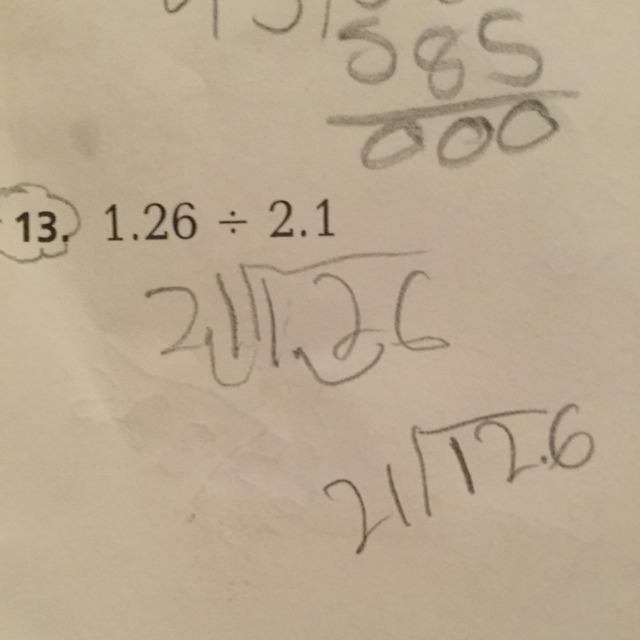 585
000
13. 1.26 ÷ 2.1
2.1 1.2.6
21 12.6